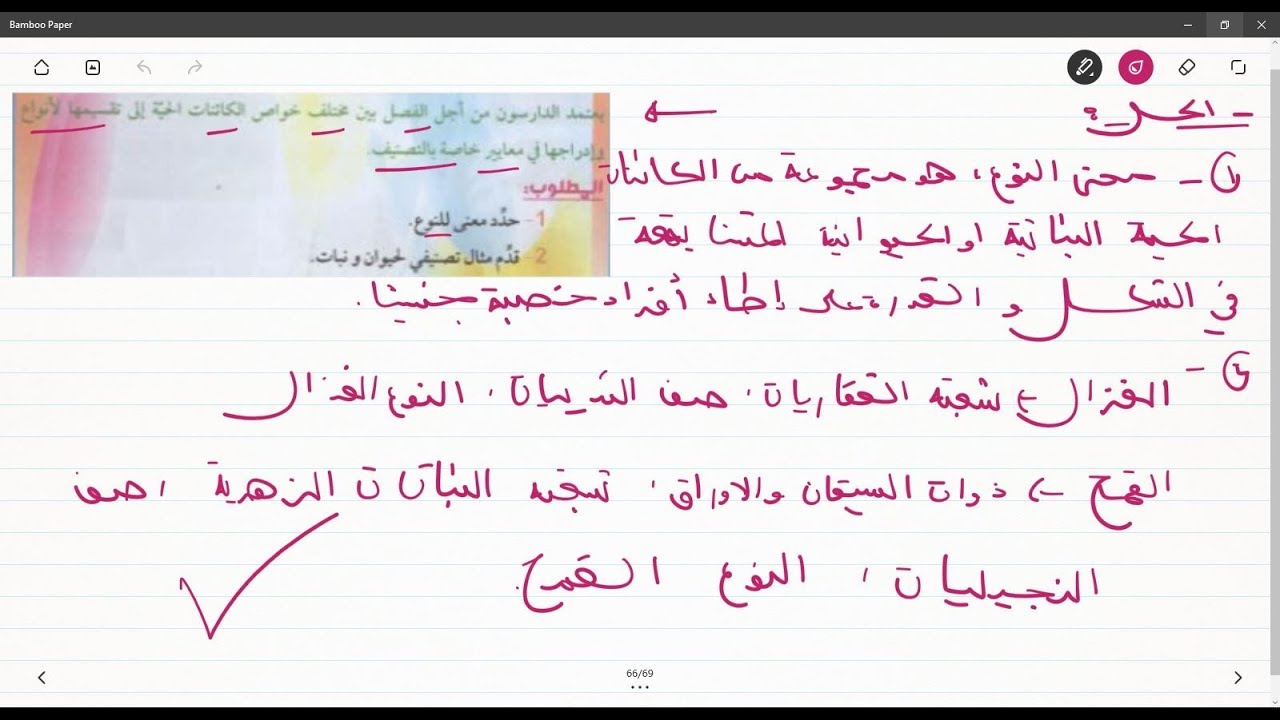 Bamboo Paper
- الحل :
يعتمد الدارسون من أجل الفصل بين مختلف خواص الكائنات الحيّة إلى تقسيمها لأنواع
وإدراجها في معايير خاصة بالتصنيف.
المطلوب:
1- حدِّد معنى للنوع.
2- قدِّم مثال تصنيفي لحيوان و نبات.
1 - معنى النوع، هو مجموعة من الكائنات
الحية النباتية او الحيوانية المتشابهة
في الشكل و القدرة على إعطاء أفراد خصبة جنسيا.
2 - الغزال ← شعبة الفقاريات، صف الثدييات، النوع الغزال
القمح ← ذوات السيقان والاوراق، شعبة النباتات الزهرية، صف
النجيليات، النوع القمح.
66/69